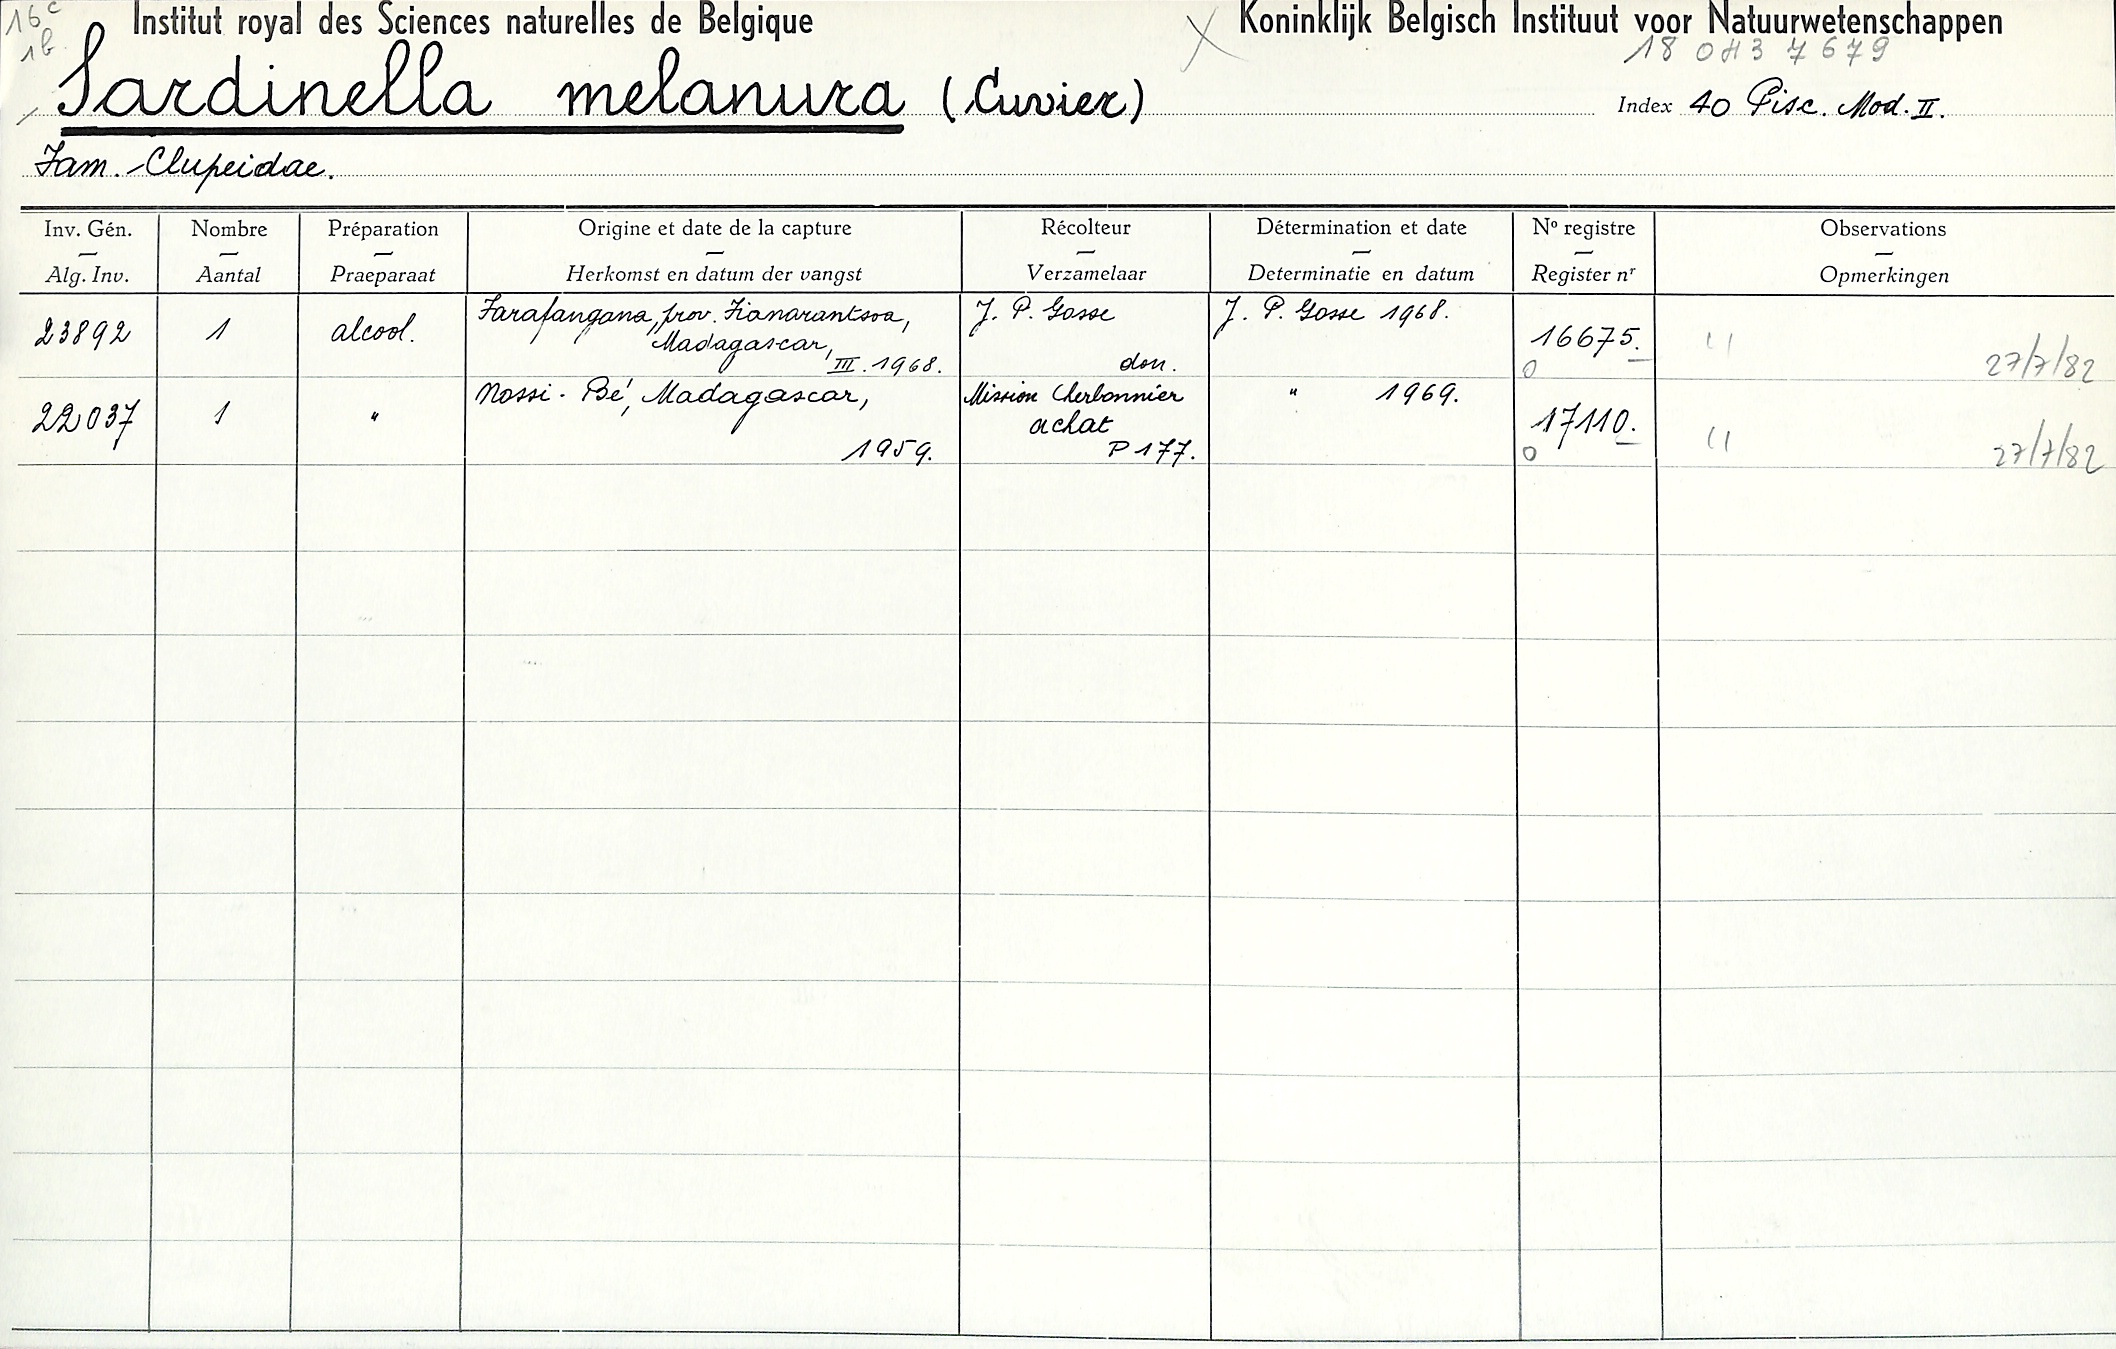 16c Institut royal des Sciences naturelles de Belgique Koninklijk Belgisch Instituut voor Natuurwetenschappen
1b 18 0H3 7679
Sardinella melanura (Cuvier) Index 40 Pisc. Mod. II.
Fam. Clupeidae.
Inv. Gén. Nombre Préparation Origine et date de la capture Récolteur Détermination et date No registre Observations
Alg. Inv. Aantal Praeparaat Herkomst en datum der vangst Verzamelaar Determinatie en datum Register nr Opmerkingen
23892 1 alcool. Farafangana, prov. Fianarantsoa, J. P. Gosse J. P. Gosse 1968. 16675.
Madagascar,
III. 1968. don. 0 27/7/82
22037 1 " Nossi-Bé, Madagascar, Mission Cherbonnier " 1969. 17110.
achat
1959. P 177. 0 27/7/82